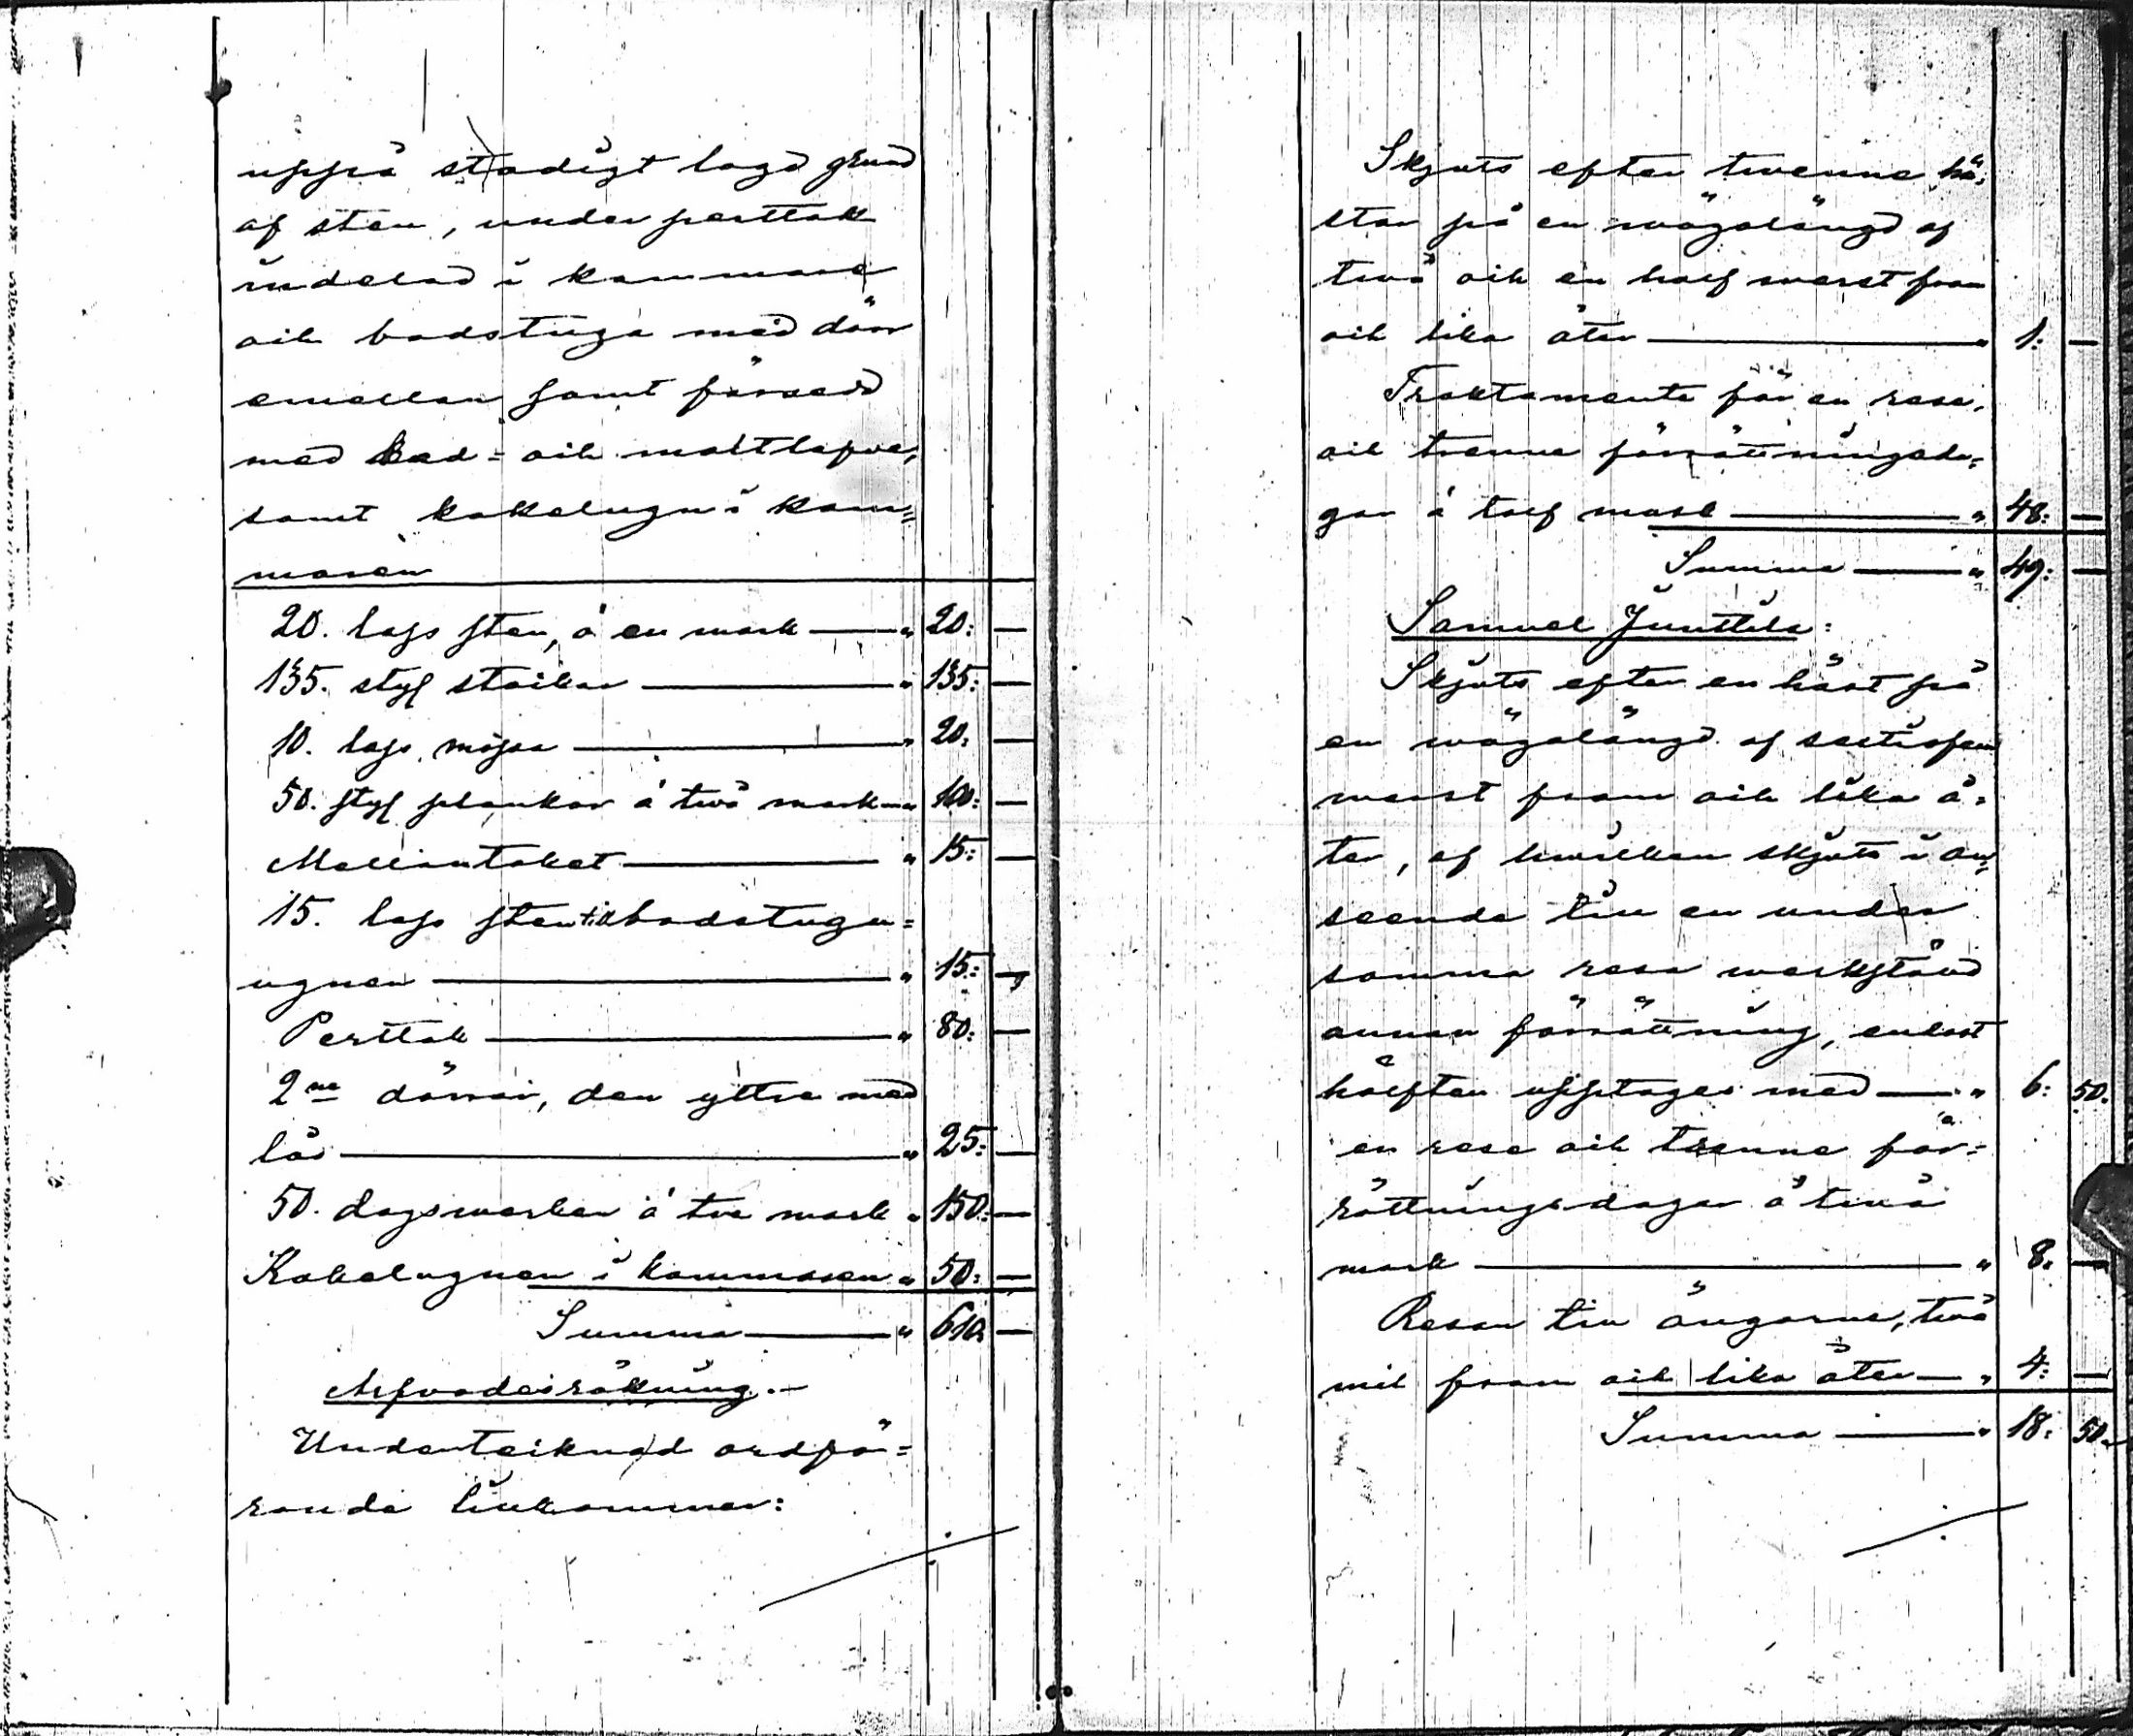 uppå stadigt lagd grund
af sten, under perttak
indelad i kammare
och badstuga med dörr
emellan samt försedd
med bad= och maltlafve,
samt kakelugn i kam=
maren
20. lass sten, à en mark — " 20: —
135. styf stockar — " 135: —
10. lass mossa — " 20: —
50. styf plankor à två mark — " 100: —
Mellantaket — " 15: —
15. lass sten till badstugu=
ugnen — " 15: —
Perttak — " 80: —
2ne dörrar, den yttre med
lås — " 25: —
50. dagsverken à tre mark " 150: —
Kakelugnen i kammaren " 50: —
Summa — " 610. —
Arfvodesräkning.—
Undertecknad ordfö=
rande tillkommer:
Skjuts efter tvenne hä=
star på en wägalängd af
två och en half werst fram
och lika åter — " 1: —
Traktamente för en rese,
och trenne förrättningsda=
gar à tolf mark — " 48: —
Summa — " 49: —
Samuel Junttila:
Skjuts efter en häst på
en wägalängd af
werst fram och lika å=
ter, af hwilken skjuts i an=
seende till en under
samma resa werkställd
annan förrättning, endast
hälften upptages med — " 6: 50.
en rese och trenne för=
rättningsdagar à två
mark — " 8. —
Resan till ängarne, två
mil fram och lika åter — " 4: —
Summa — " 18: 50.